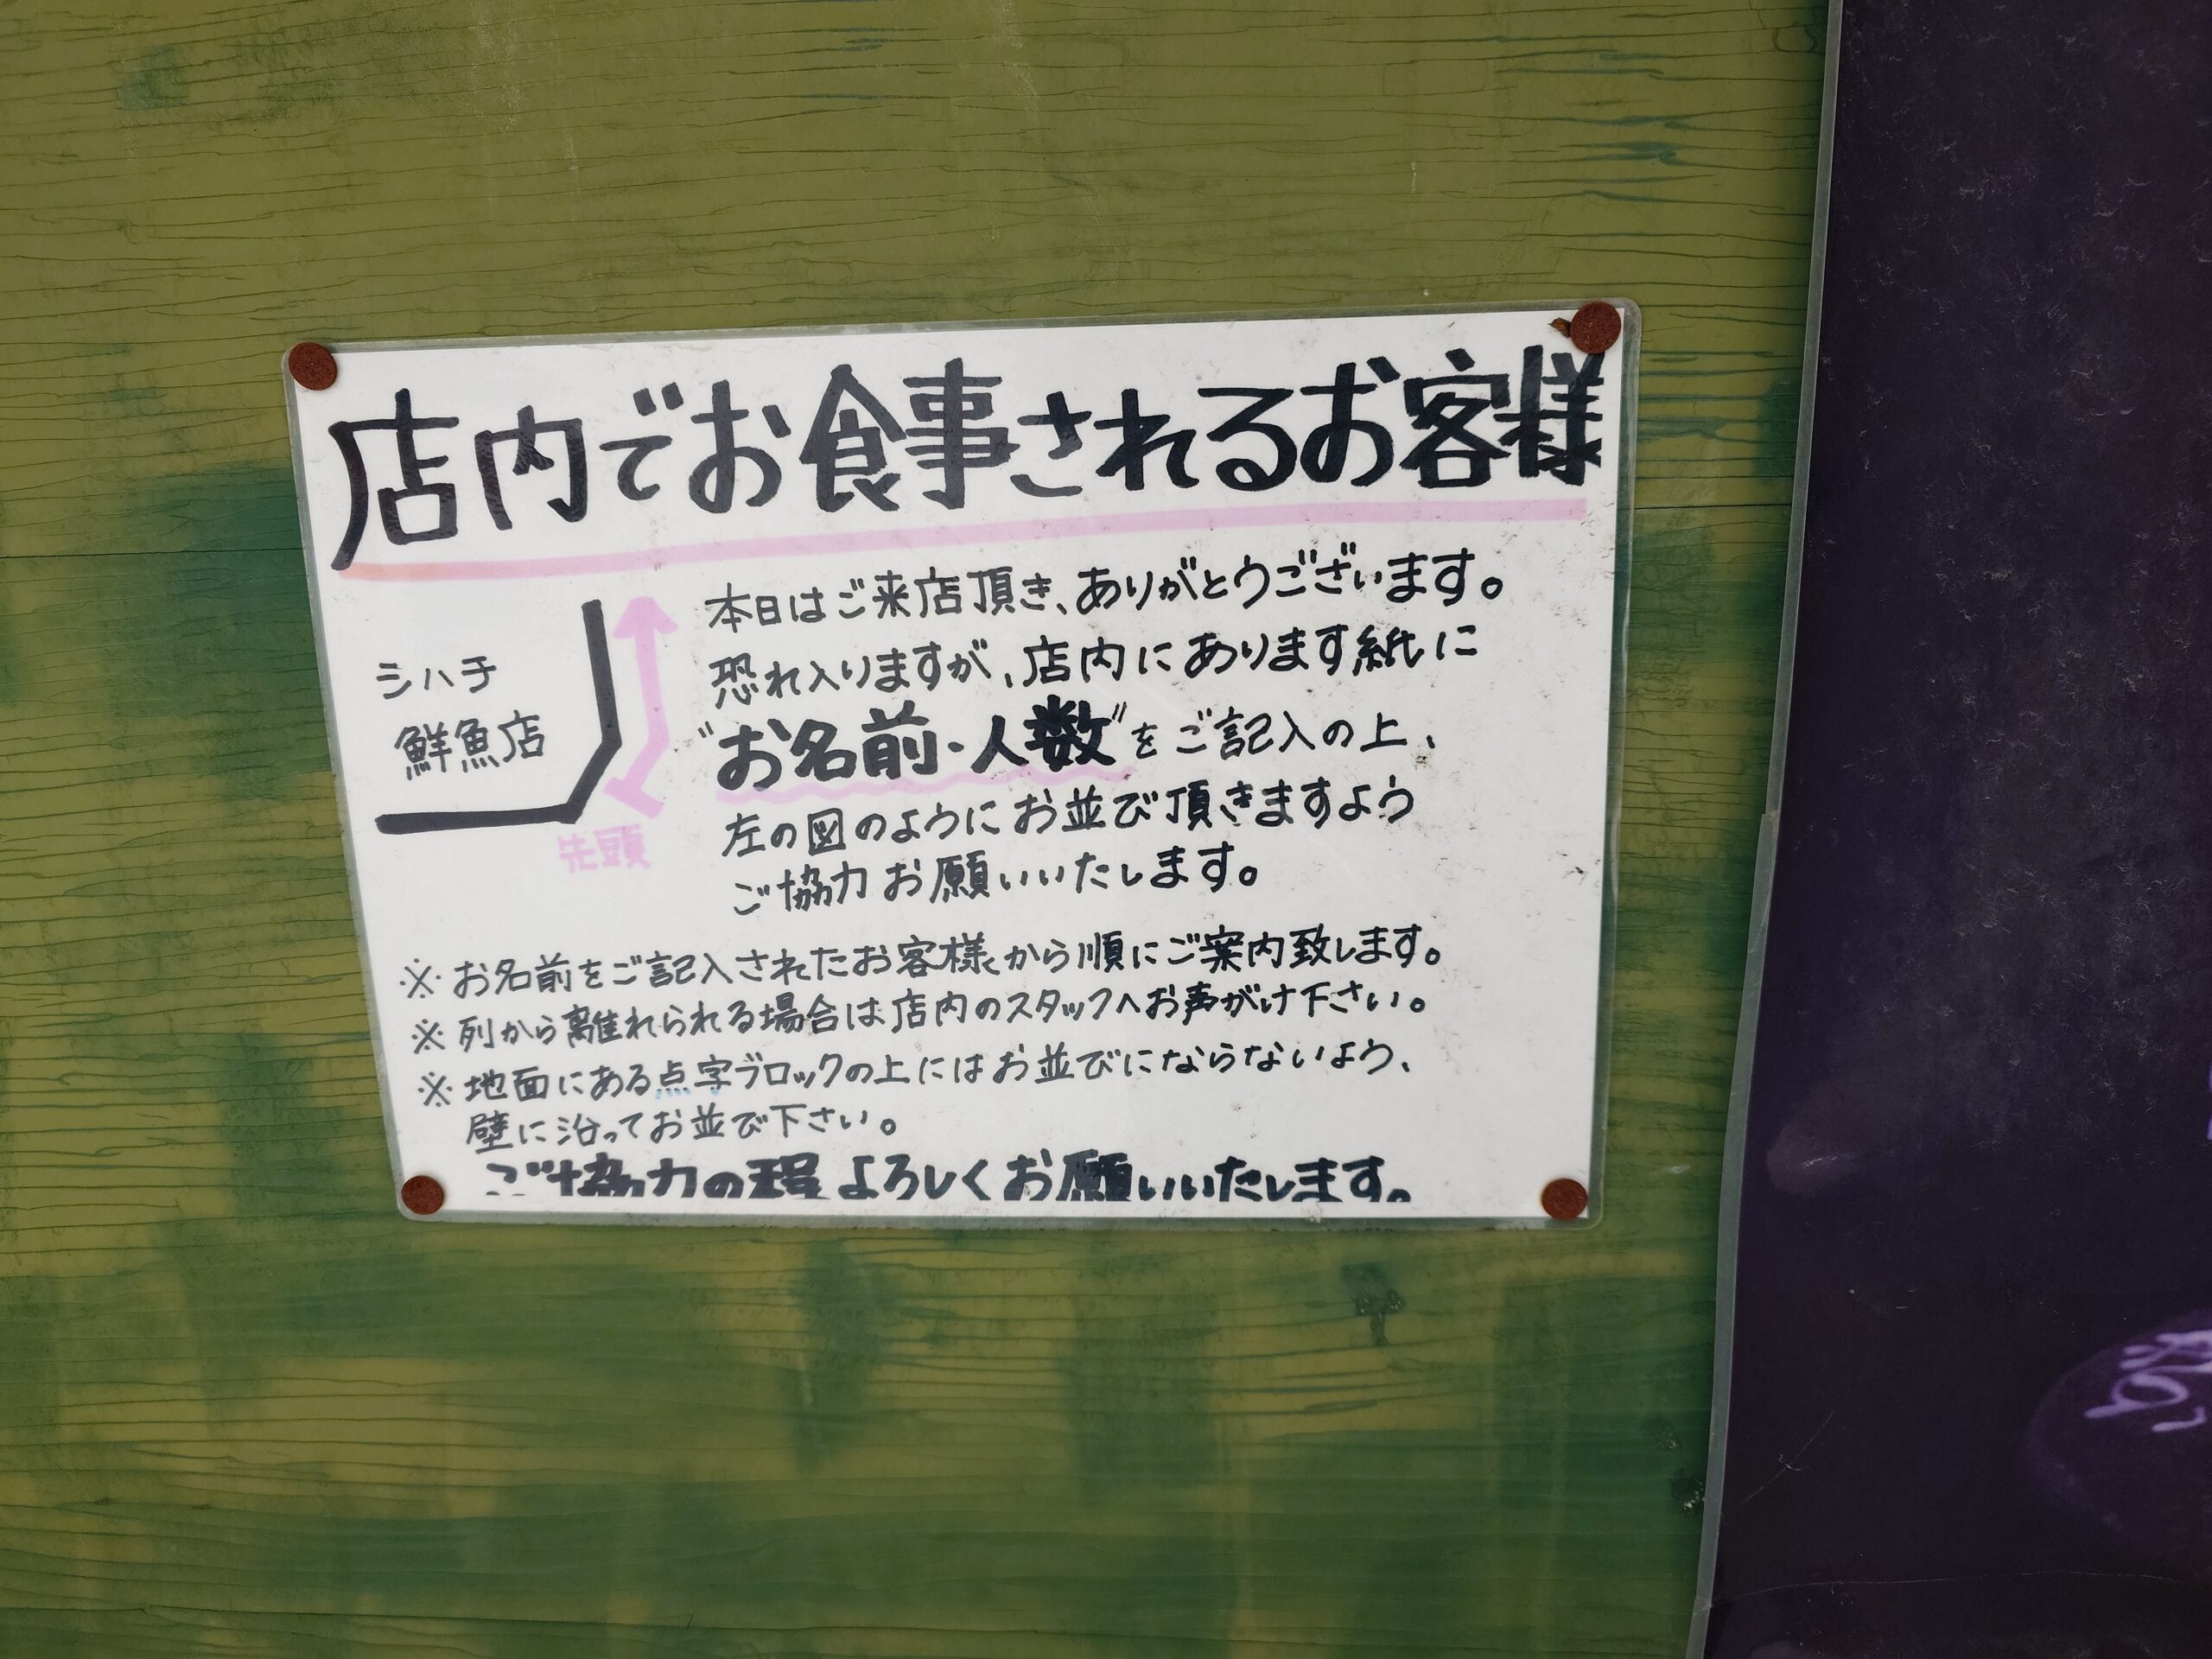 店内でお食事されるお客様
シハチ
鮮魚店
先頭
本日はご来店頂き、ありがとうございます。
恐れ入りますが、店内にあります紙に
"お名前・人数"をご記入の上、
左の図のようにお並び頂きますよう
ご協力お願いいたします。
※お名前をご記入されたお客様から順にご案内致します。
※列から離れられる場合は店内のスタッフへお声がけ下さい。
※地面にある点字ブロックの上にはお並びにならないよう、
壁に沿ってお並び下さい。
ご協力の程よろしくお願いいたします。